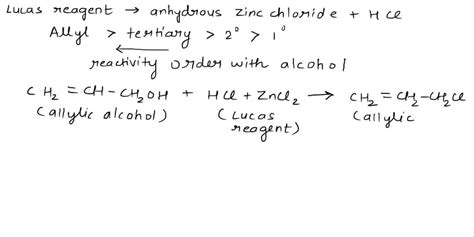 Lucas reagent → anhydrous zinc chloride + HCl
Allyl > tertiary > 2° > 1°
←
reactivity order with alcohol
CH₂ = CH - CH₂OH + HCl + ZnCl₂ → CH₂ = CH₂ - CH₂Cl
(allylic alcohol) (Lucas reagent) (allylic